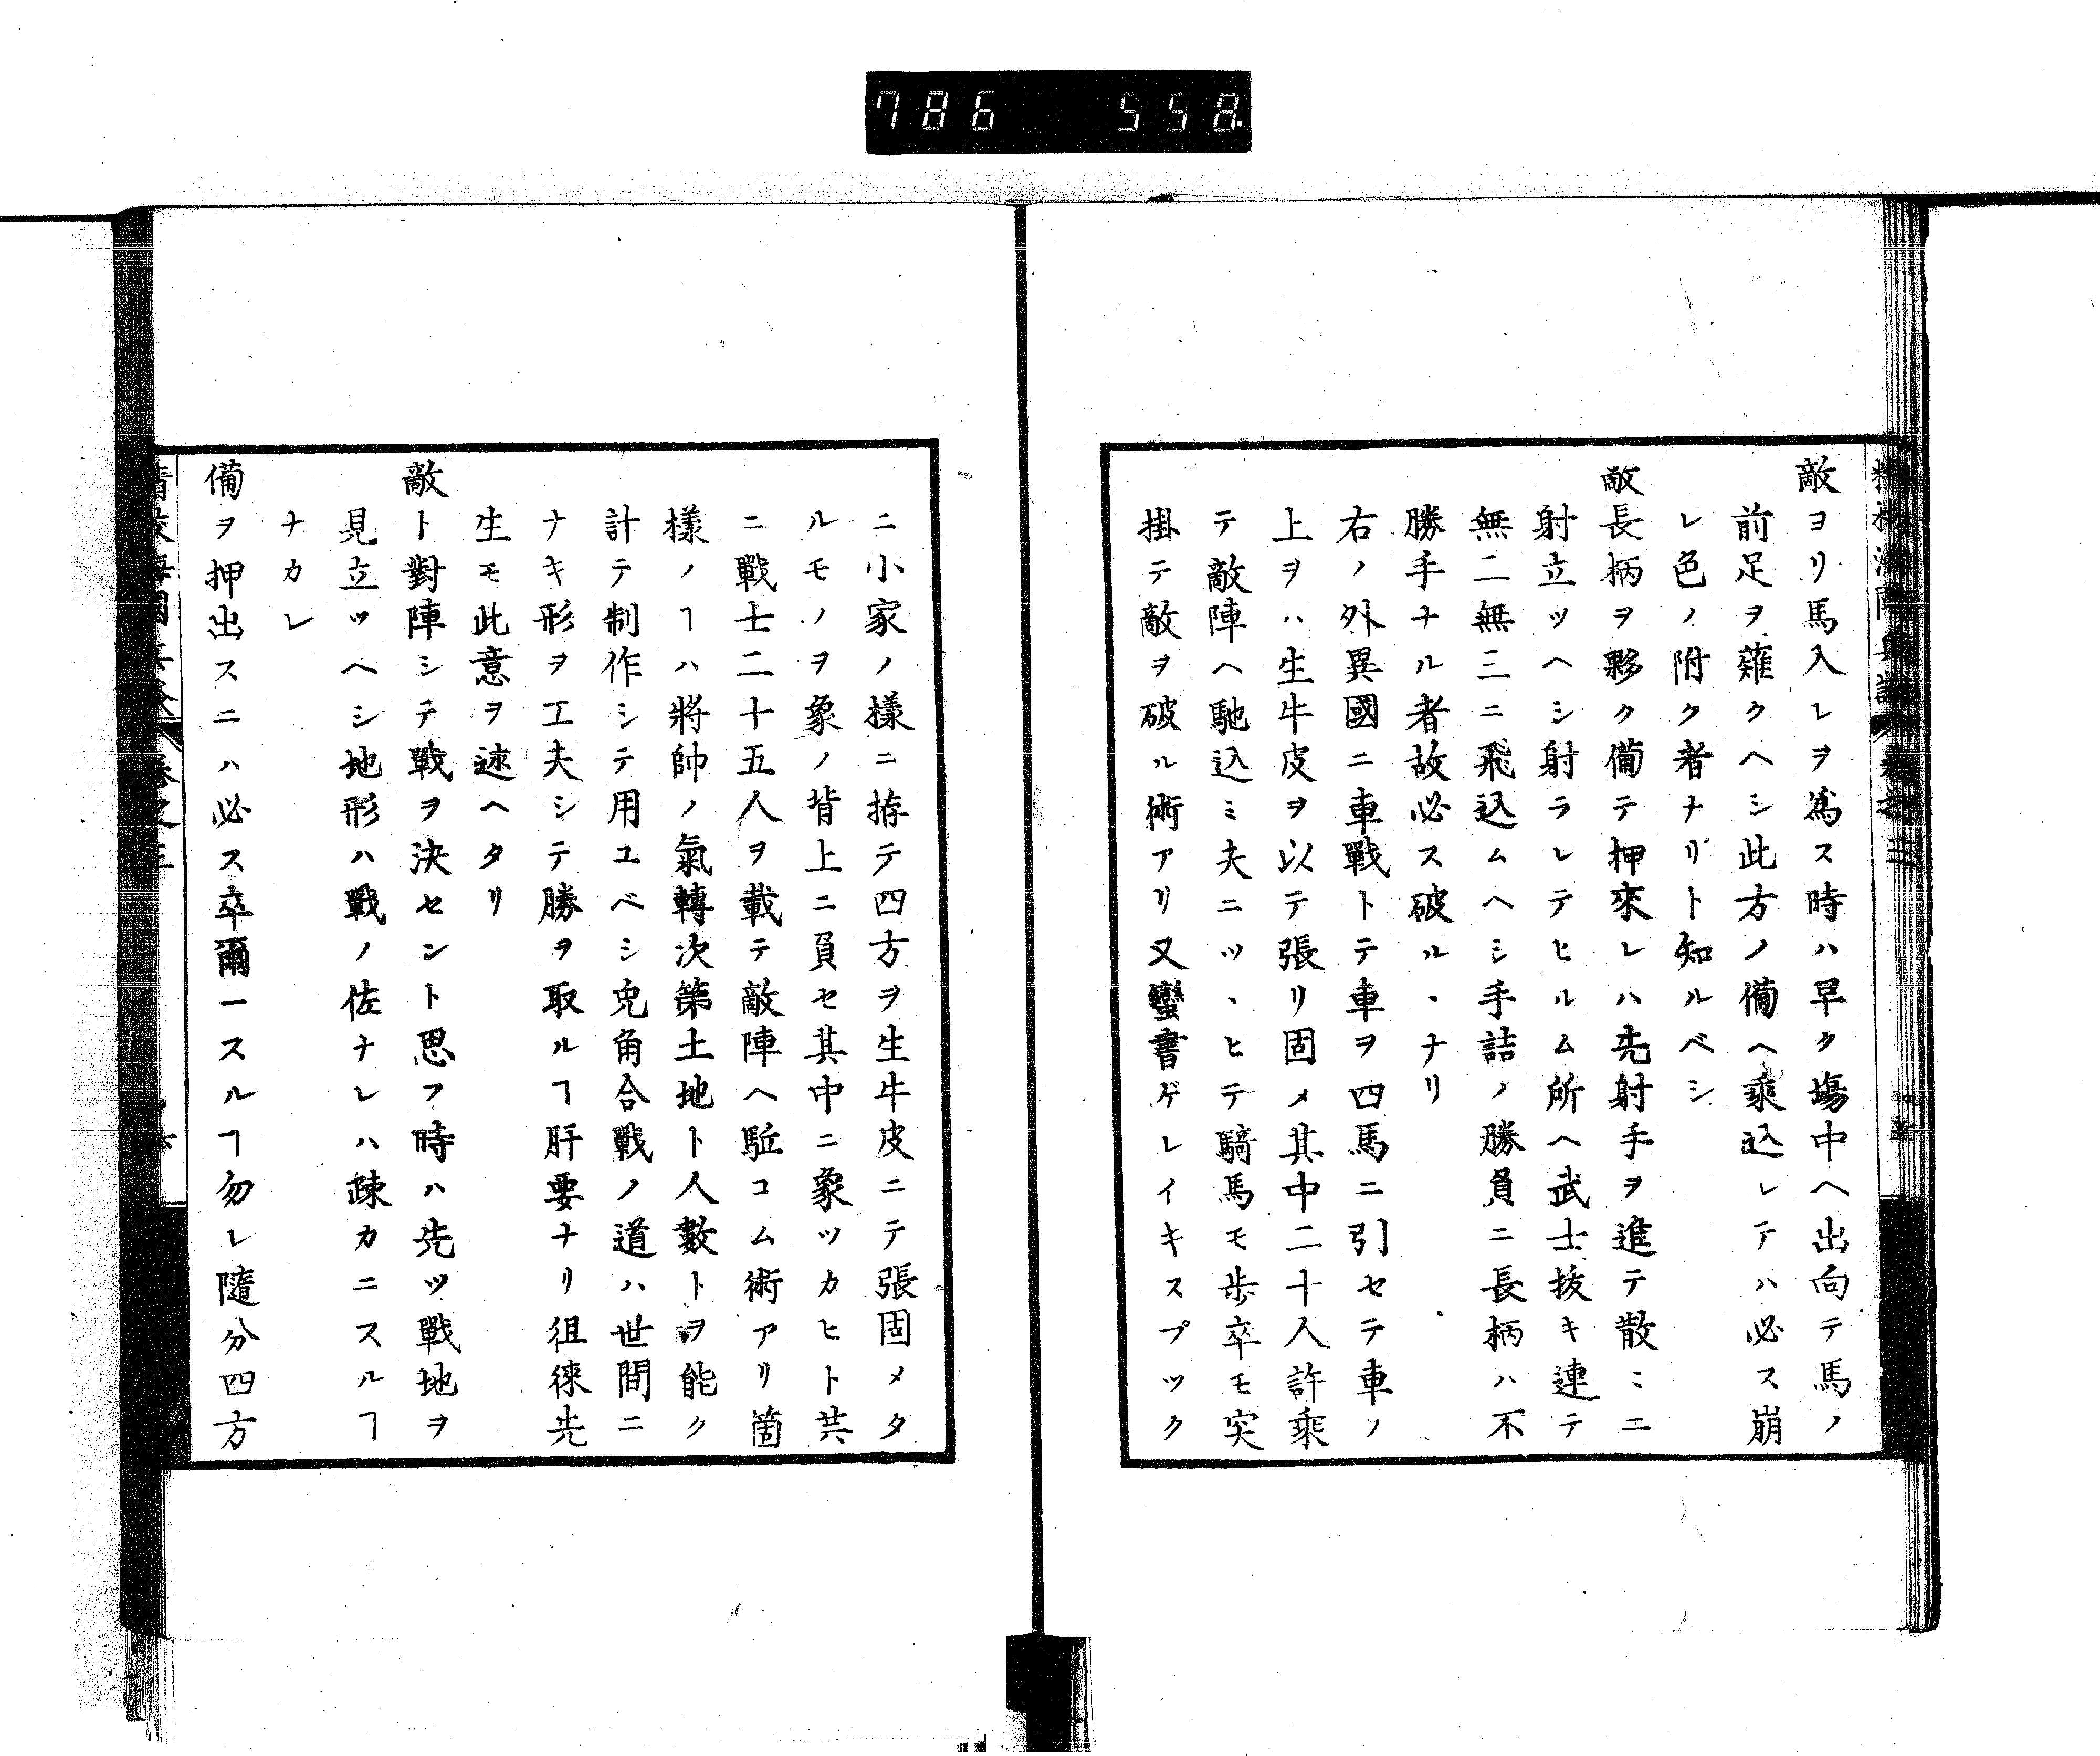 786 558
敵ヨリ馬入レヲ爲ス時ハ早ク塲中ヘ出向テ馬ノ
前足ヲ薙クヘシ此方ノ備ヘ乘込レテハ必ス崩
レ色ノ附ク者ナリト知ルベシ
敵長柄ヲ夥ク備テ押來レハ先射手ヲ進テ散〻ニ
射立ツヘシ射ラレテヒルム所ヘ武士拔キ連テ
無二無三ニ飛込ムヘシ手詰ノ勝負ニ長柄ハ不
勝手ナル者故必ス破ルヽナリ
右ノ外異國ニ車戰トテ車ヲ四馬ニ引セテ車ノ
上ヲハ生牛皮ヲ以テ張リ固メ其中二十人許乘
テ敵陣ヘ馳込ミ夫ニツヽヒテ騎馬モ歩卒モ突
掛テ敵ヲ破ル術アリ又蠻書ゲレイキスプック
ニ小家ノ樣ニ拵テ四方ヲ生牛皮ニテ張固メタ
ルモノヲ象ノ背上ニ負セ其中ニ象ツカヒト共
ニ戰士二十五人ヲ載テ敵陣ヘ駈コム術アリ箇
樣ノヿハ將帥ノ氣轉次第土地ト人數トヲ能ク
計テ制作シテ用ユベシ兎角合戰ノ道ハ世間ニ
ナキ形ヲ工夫シテ勝ヲ取ルヿ肝要ナリ徂徠先
生モ此意ヲ述ヘタリ
敵ト對陣シテ戰ヲ決セント思フ時ハ先ツ戰地ヲ
見立ツヘシ地形ハ戰ノ佐ナレハ疎カニスルヿ
ナカレ
備ヲ押出スニハ必ス卒爾ースルヿ勿レ隨分四方